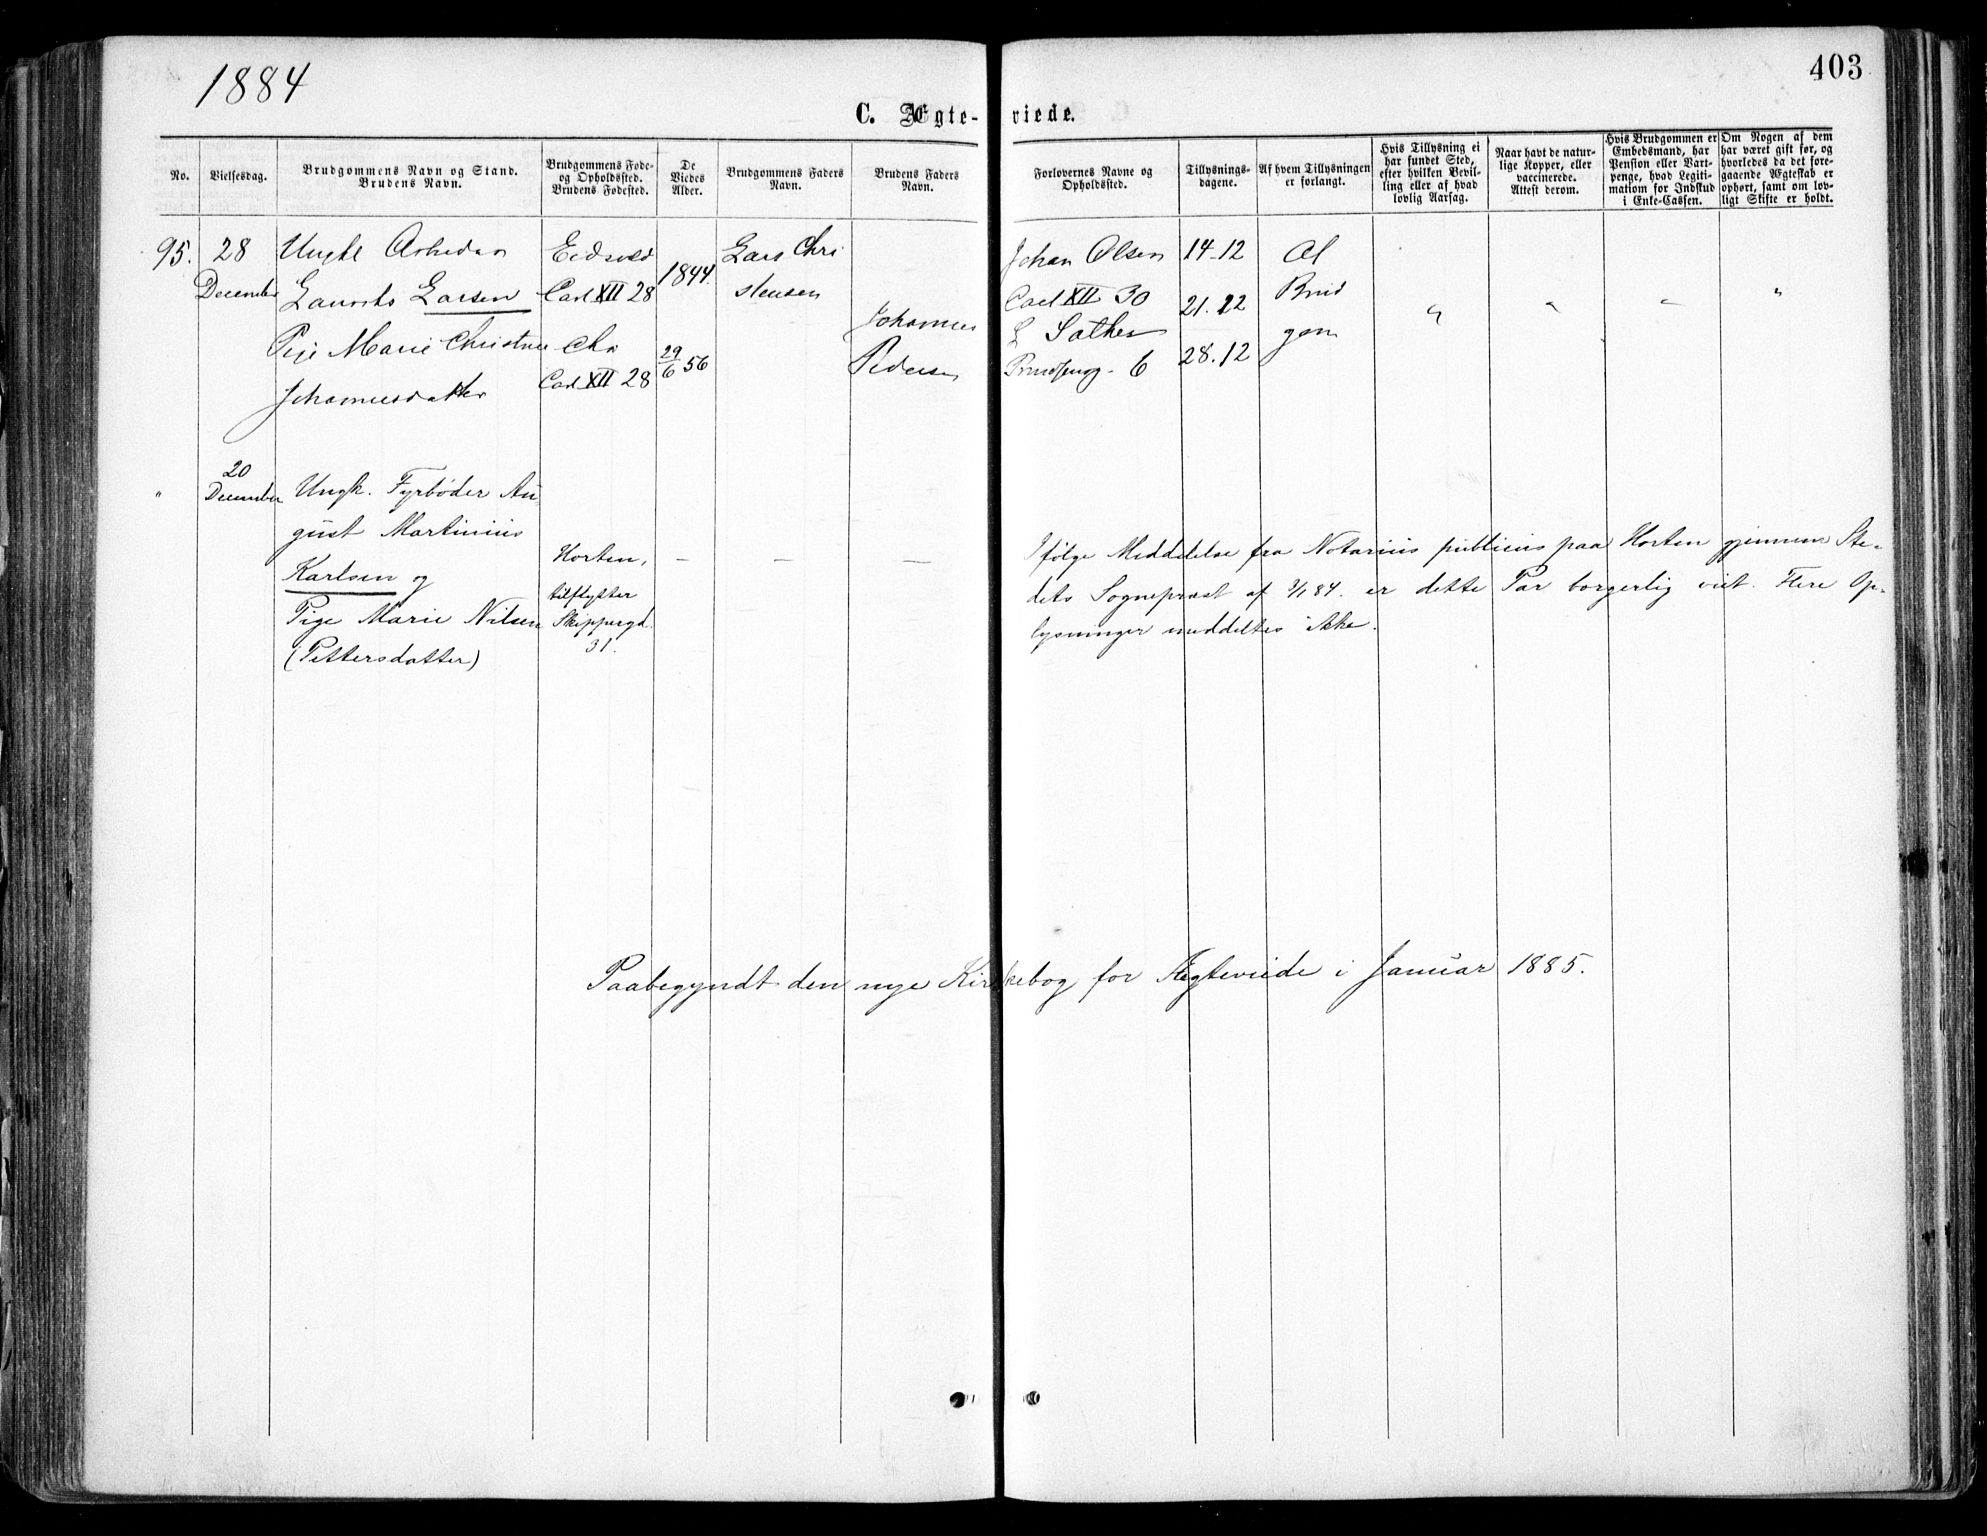 1884
403
C. Ægte-viede.
No.
Vielsesdag.
Brudgommens Navn og Stand.
Brudens Navn.
Brudgommens Føde-
og Opholdssted.
Brudens Fødested.
De
Viedes
Alder.
Brudgommens Faders
Navn.
Brudens Faders
Navn.
Forlovernes Navne og
Opholdssted.
Tillysnings-
dagene.
Af hvem Tillysningen
er forlangt.
Hvis Tillysning ei
har fundet Sted,
efter hvilken Bevil-
ling eller af hvad
lovlig Aarsag.
Naar havt de natur-
lige Kopper, eller
vaccinerede.
Attest derom.
Hvis Brudgommen er
Embedsmand, har
Pension eller Vart-
penge, hvad Legiti-
mation for Indskud
i Enke-Cassen.
Om Nogen af dem
har været gift før, og
hvorledes da det fore-
gaaende Ægteskab er
ophørt, samt om lov-
ligt Skifte er holdt.
95.
28
December
Ungkl Arbeider
Laurits Larsen
Pige Marie Christine
Johannesdatter
Eidsvold
Carl XII 28
Chr
Carl XII 28
1844.
29/6 56
Lars Chri
stensen
Johannes
Pedersen
Johan Olsen
Carl XII 30
L Sather
Prindsensg. 6
14-12
21.12
28.12
Af
Brud
gom
" " – "
"
20
December
Ungk. Fyrbøder Au-
gust Martinius
Karlsen og
Pige Marie Nilsen
(Pettersdatter)
Horten,
tilflytter
Skippergd.
31.
– – –
Ifølge Meddelelse fra Notarius publicus paa Horten gjennem Ste-
dets Sognepræst af 84. er dette Par borgerlig viet. Flere Op-
lysninger meddeltes ikke.
Paabegyndt den nye Kirkebog for Ægteviede i Januar 1885.